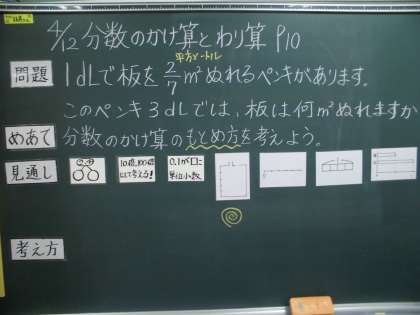 4/12 分数のかけ算とわり算 P10
平方メートル
問題 1dLで板を2/7m²ぬれるペンキがあります。
このペンキ3dLでは、板は何m²ぬれますか
めあて 分数のかけ算のもとめ方を考えよう。
見通し
10倍、100倍
にして考える!
0.1が□こ
単位小数
考え方